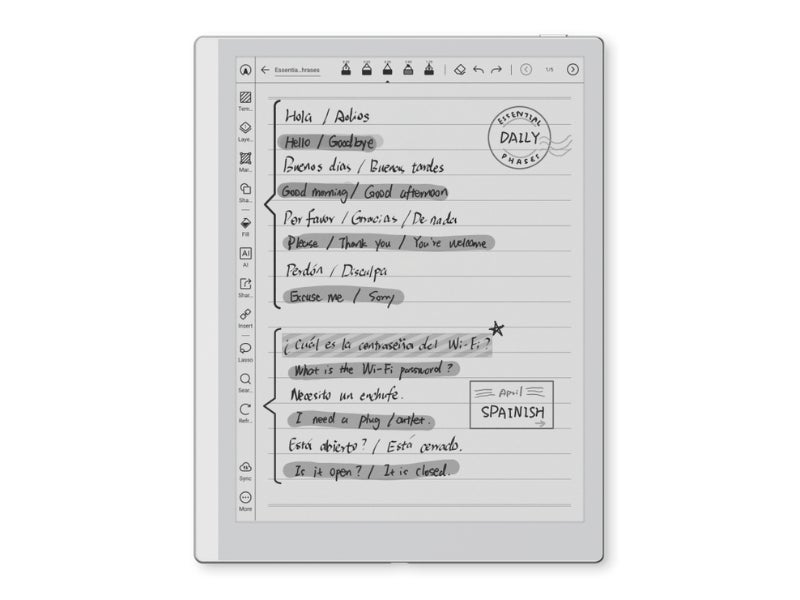 Essentia...hrases
1/5
Tem...
Laye...
Mar...
Sha...
Fill
AI
AI
Shar...
Insert
Lasso
Sear...
Refr...
Sync
More
Hola / Adios
Hello / Goodbye
Buenos dias / Buenas tardes
Good morning / Good afternoon
Por favor / Gracias / De nada
Please / Thank you / You're welcome
Perdón / Disculpa
Excuse me / Sorry
ESSENTIAL
DAILY
PHASES
¿Cuál es la contraseña del Wi-Fi?
What is the Wi-Fi password?
Necesito un enchufe.
I need a plug /outlet.
Está abierto? / Está cerrado.
Is it open? / It is closed.
April
SPAINISH